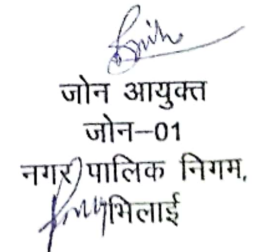 जोन आयुक्त
जोन-01
नगर पालिक निगम,
भिलाई